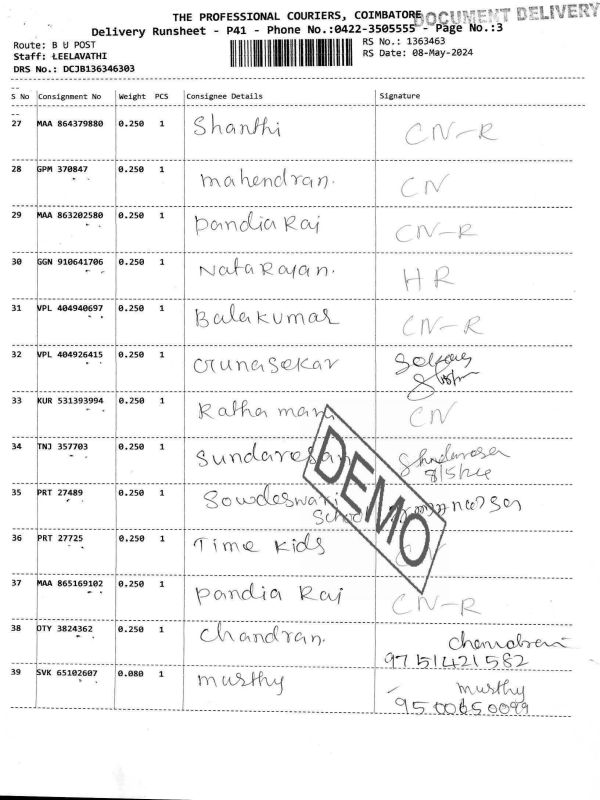 THE PROFESSIONAL COURIERS, COIMBATORE
DOCUMENT DELIVERY
Delivery Runsheet - P41 - Phone No.:0422-3505555 - Page No.:3
Route: B U POST
Staff: LEELAVATHI
DRS No.: DCJB136346303
RS No.: 1363463
RS Date: 08-May-2024
S No Consignment No Weight PCS Consignee Details Signature
27 MAA 864379880 0.250 1 Shanthi CN-R
28 GPM 370847 0.250 1 mahendran. CN
29 MAA 863202580 0.250 1 Pandia Raj CN-R
30 GGN 910641706 0.250 1 Natarajan. HR
31 VPL 404940697 0.250 1 Balakumar CN-R
32 VPL 404926415 0.250 1 Gunasekar
33 KUR 531393994 0.250 1 Ratha mani CN
34 TNJ 357703 0.250 1 Sundaresan
8/5/24
35 PRT 27489 0.250 1 Sowdeswari
School
36 PRT 27725 0.250 1 Time kids CN
37 MAA 865169102 0.250 1 Pandia Raj CN-R
38 OTY 3824362 0.250 1 Chandran. Chandran
9751421582
39 SVK 65102607 0.080 1 murthy murthy
9500650099
DEMO